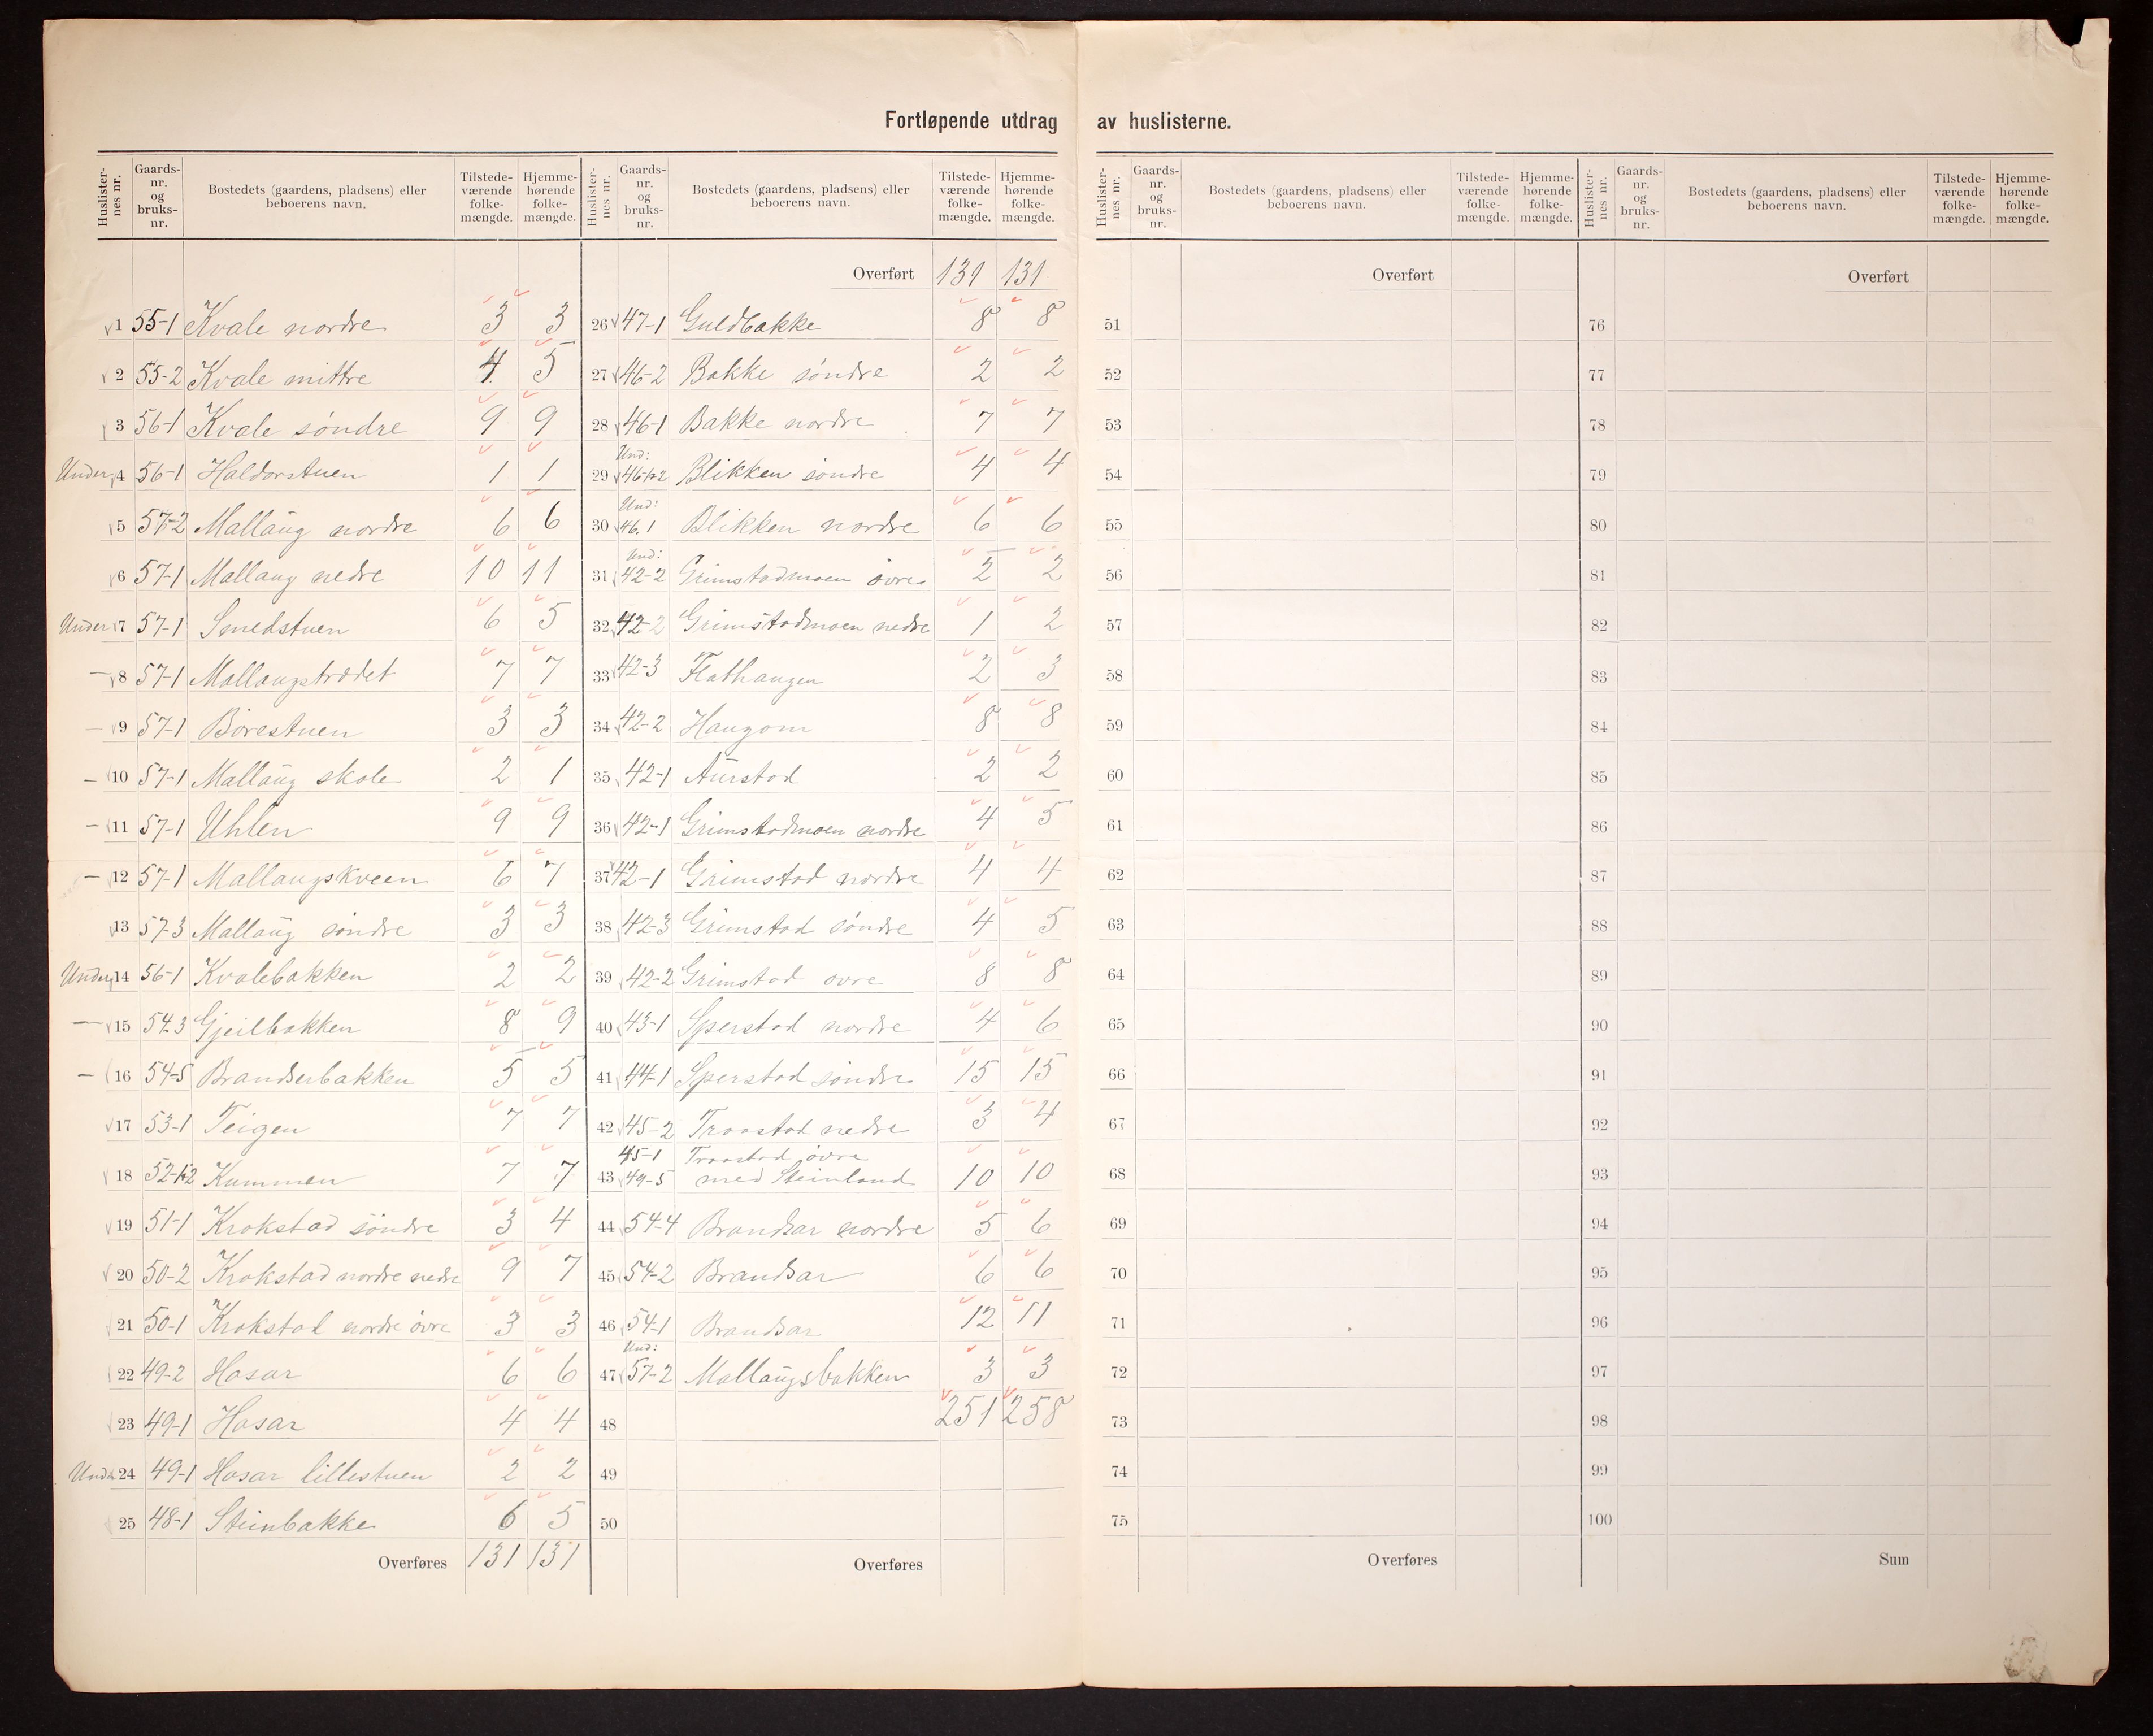 Fortløpende utdrag av huslisterne.
Huslister-nes nr. | Gaards-nr. og bruks-nr. | Bostedets (gaardens, pladsens) eller beboerens navn. | Tilstede-værende folke-mængde. | Hjemme-hørende folke-mængde.
1 55-1 Kvale nordre 3 3
2 55-2 Kvale mittre 4 5
3 56-1 Kvale søndre 9 9
Under 4 56-1 Haldorstuen 1 1
5 57-2 Mallaug nordre 6 6
6 57-1 Mallaug nedre 10 11
Under 7 57-1 Smedstuen 6 5
— 8 57-1 Mallaugstrødet 7 7
— 9 57-1 Börestuen 3 3
— 10 57-1 Mallaug skole 2 1
— 11 57-1 Uhlen 9 9
— 12 57-1 Mallaugskveen 6 7
13 57-3 Mallaug søndre 3 3
Under 14 56-1 Kvalebakken 2 2
— 15 54.3 Gjeilbakken 8 9
— 16 54-5 Brandserbakken 5 5
17 53-1 Teigen 7 7
18 52-1-2 Kummen 7 7
19 51-1 Krokstad søndre 3 4
20 50-2 Krokstad nordre nedre 9 7
21 50-1 Krokstad nordre øvre 3 3
22 49-2 Hosar 6 6
23 49-1 Hosar 4 4
Under 24 49-1 Hosar lillestuen 2 2
25 48-1 Steinbakke 6 5
Overføres 131 131
Huslister-nes nr. | Gaards-nr. og bruks-nr. | Bostedets (gaardens, pladsens) eller beboerens navn. | Tilstede-værende folke-mængde. | Hjemme-hørende folke-mængde.
Overført 131 131
26 47-1 Guldbakke 8 8
27 46-2 Bakke søndre 2 2
28 46-1 Bakke nordre 7 7
Und:
29 46-1-2 Blikken søndre 4 4
Und:
30 46.1 Blikken nordre 6 6
Und:
31 42-2 Grimstadmoen øvre 2 2
32 42-2 Grimstadmoen nedre 1 2
33 42-3 Flathaugen 2 3
34 42-2 Haugom 8 8
35 42-1 Aurstad 2 2
36 42-1 Grimstadmoen nordre 4 5
37 42-1 Grimstad nordre 4 4
38 42-3 Grimstad søndre 4 5
39 42-2 Grimstad øvre 8 8
40 43-1 Sperstad nordre 4 6
41 44-1 Sperstad søndre 15 15
42 45-2 Traastad nedre 3 4
45-1 Traastad øvre
43 49-5 med Steinland 10 10
44 54-4 Brandsar nordre 5 6
45 54-2 Brandsar 6 6
46 54-1 Brandsar 12 11
Und:
47 57-2 Mallaugsbakken 3 3
48 251 258
49
50
Overføres
Huslister-nes nr. | Gaards-nr. og bruks-nr. | Bostedets (gaardens, pladsens) eller beboerens navn. | Tilstede-værende folke-mængde. | Hjemme-hørende folke-mængde.
Overført
51
52
53
54
55
56
57
58
59
60
61
62
63
64
65
66
67
68
69
70
71
72
73
74
75
Overføres
Huslister-nes nr. | Gaards-nr. og bruks-nr. | Bostedets (gaardens, pladsens) eller beboerens navn. | Tilstede-værende folke-mængde. | Hjemme-hørende folke-mængde.
Overført
76
77
78
79
80
81
82
83
84
85
86
87
88
89
90
91
92
93
94
95
96
97
98
99
100
Sum